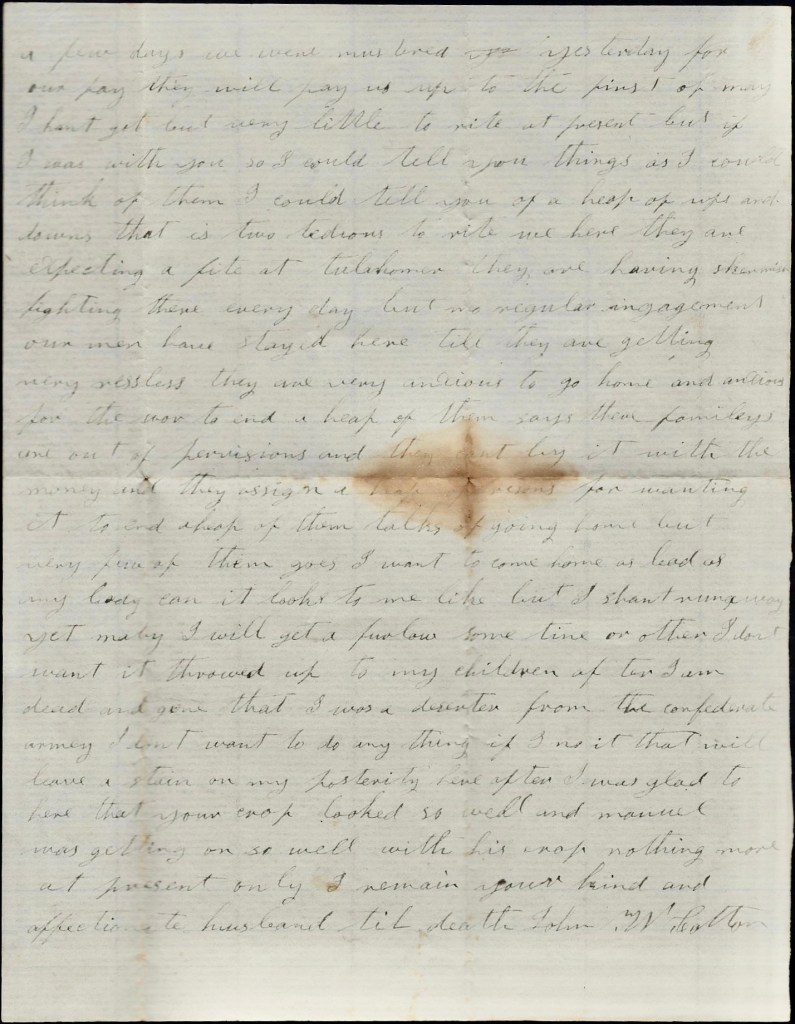 a few days we were mustered yesterday for
our pay they will pay us up to the first of may
I hant got but very little to rite at present but if
I was with you so I could tell you things as I could
think of them I could tell you of a heap of ups and
downs that is two tedious to rite we here they are
expecting a fite at tulahomer they are having skermish
fighting there every day but no regular ingagement
our men have stayd here till they are getting
very ressless they are very ancious to go home and ancious
for the wor to end a heap of them says there famileys
are out of pervisions and they cant by it with the
money and they assign a heap of resons for wanting
it to end a heap of them talks of going home but
very few of them goes I want to come home as bad as
any body can it looks to me like but I shant runaway
yet maby I will get a furlow some time or other I dont
want it throwed up to my children after I am
dead and gone that I was a deserter from the confederate
armey I dont want to do any thing if I no it that will
leave a stain on my posterity here after I was glad to
here that your crop looked so well and manuel
was getting on so well with his crop nothing more
at present only I remain your kind and
affectionate husband til death John W Cotton